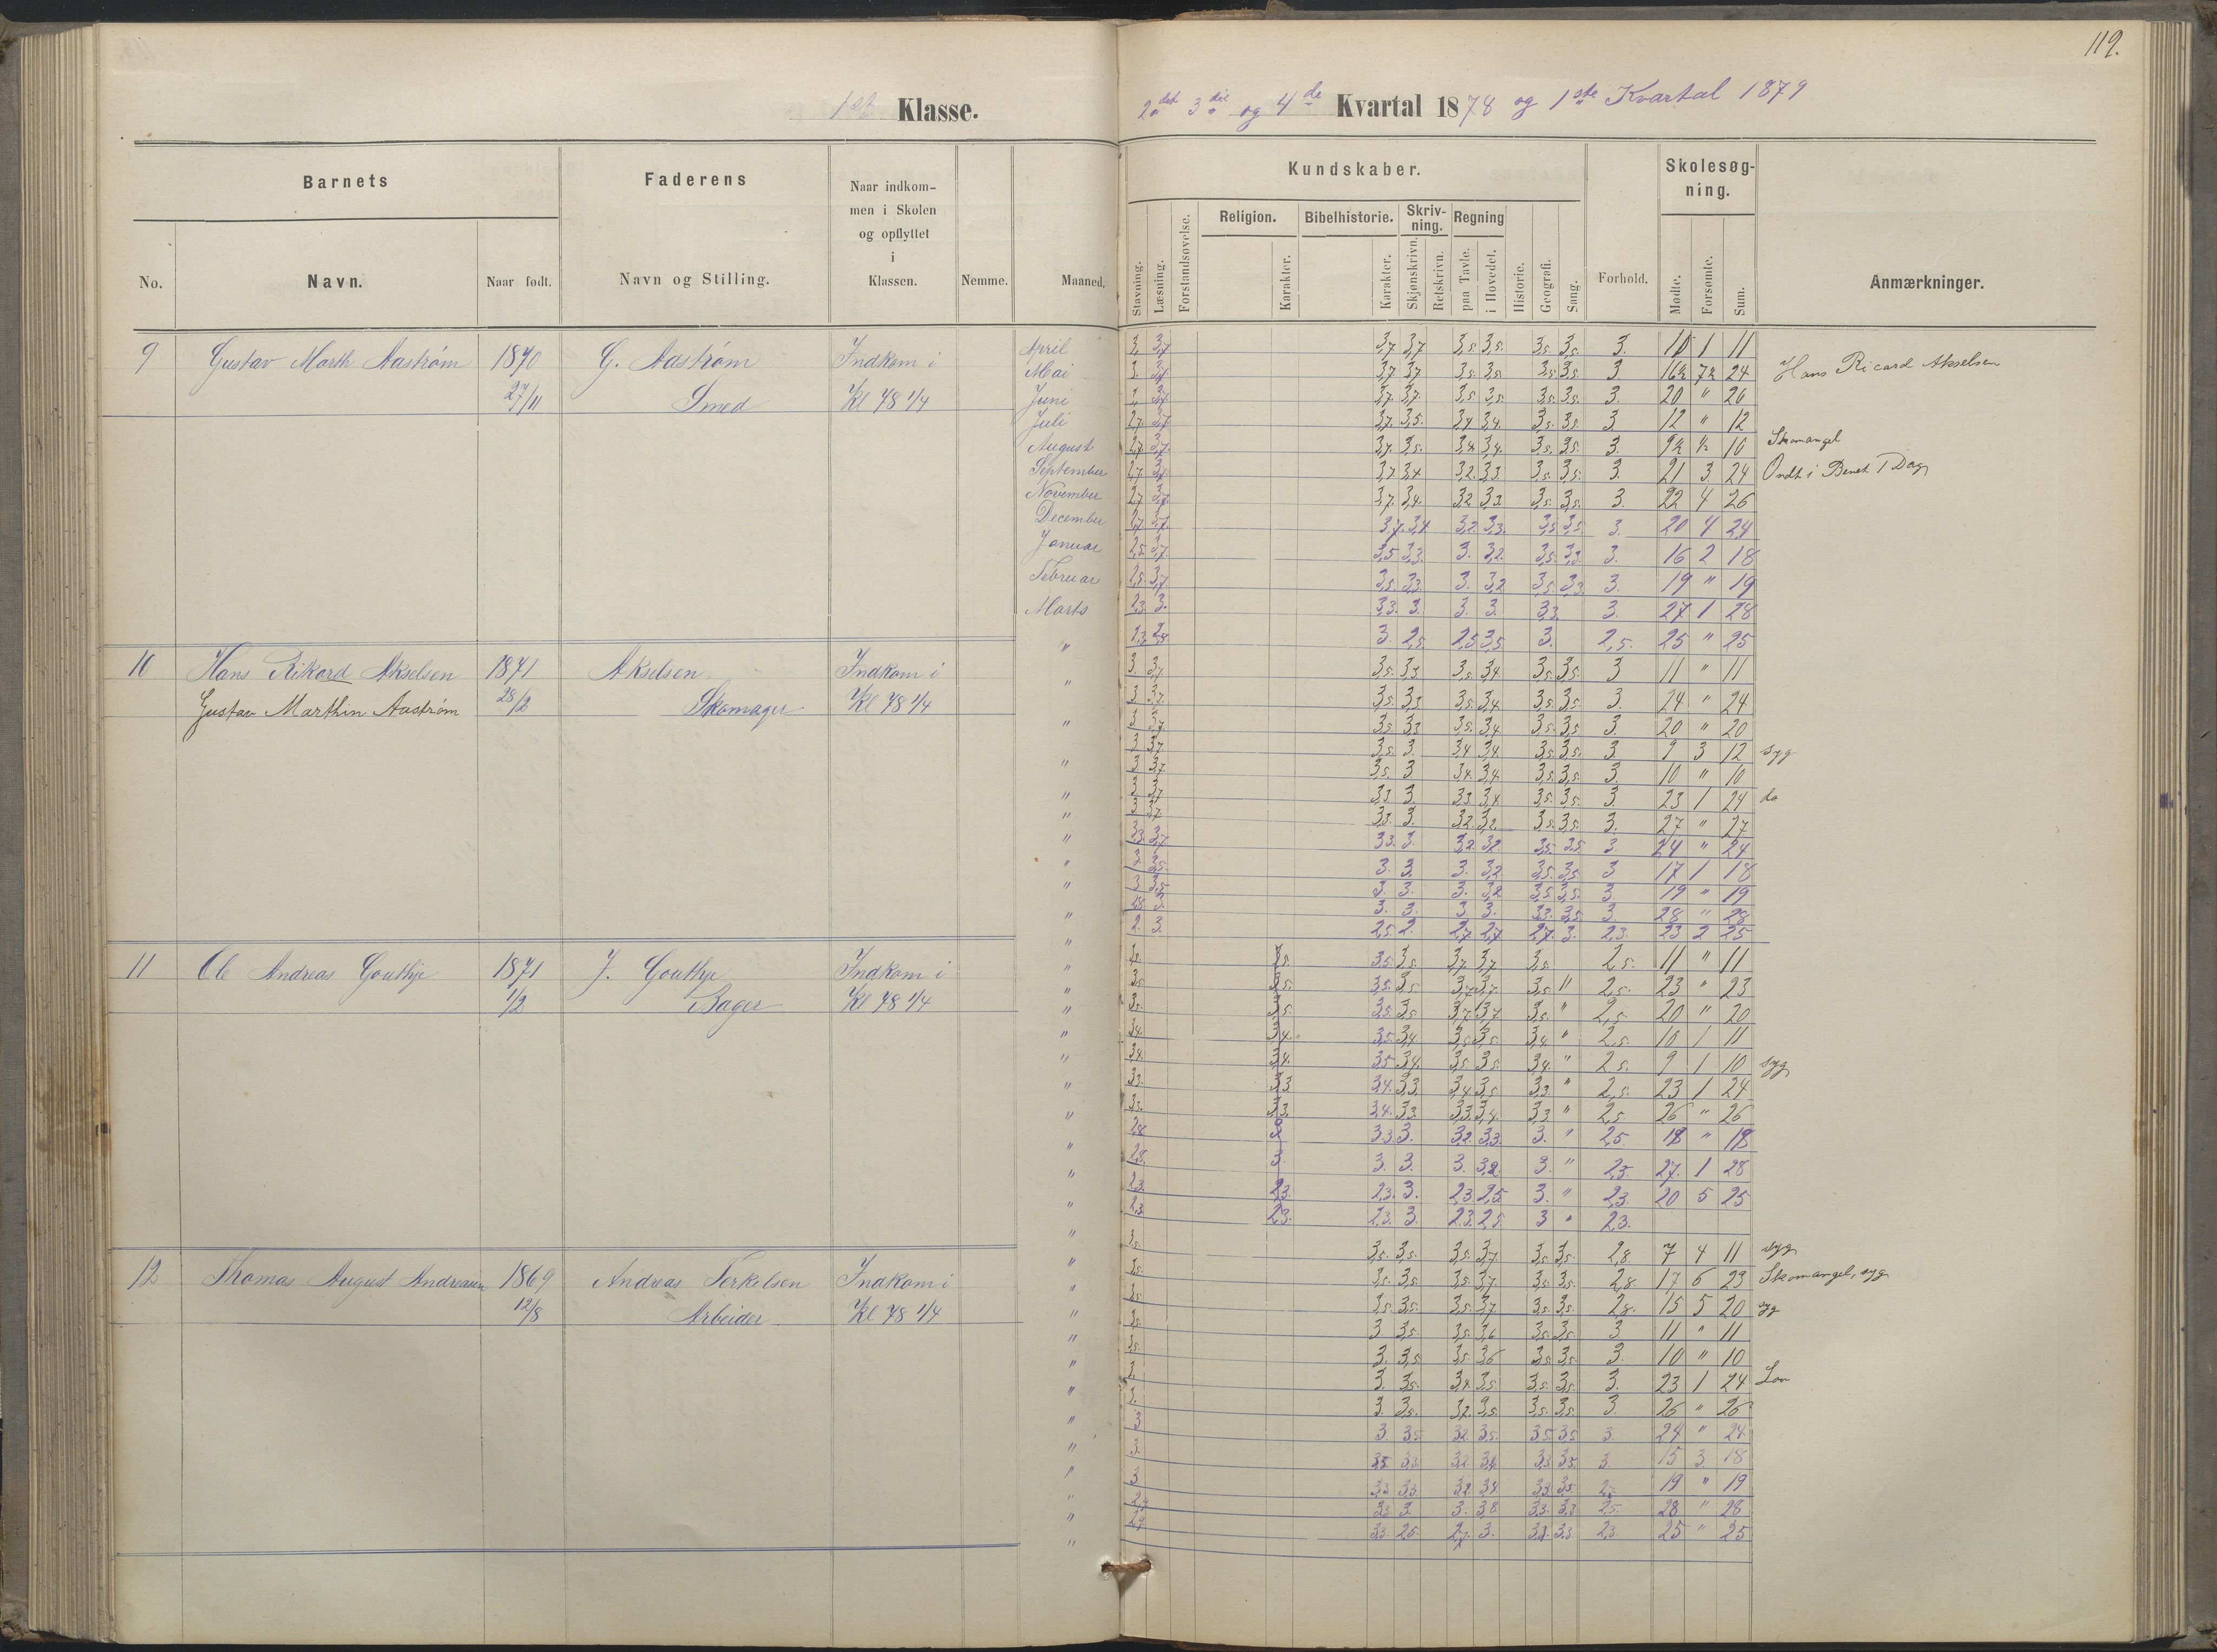 119.
1ste Klasse.
2det 3die og 4de Kvartal 1878 og 1ste Kvartal 1879
Barnets
Faderens
Naar indkom-
men i Skolen
og opflyttet
i
Klassen.
No.
Navn.
Naar født.
Navn og Stilling.
Nemme.
Maaned.
Kundskaber.
Skolesøg-
ning.
Religion.
Bibelhistorie.
Skriv-
ning.
Regning
Stavning.
Læsning.
Forstandsøvelse.
Karakter.
Karakter.
Skjønskrivn.
Retskrivn.
paa Tavle.
i Hovedet.
Historie.
Geografi.
Sang.
Forhold.
Mødte.
Forsømte.
Sum.
Anmærkninger.
9 Gustav Marth. Aastrøm 1870 G. Aastrøm Indkom i
27/11 Smed Kl 78 1/4
April
Mai
Juni
Juli
August
September
November
December
Januar
Februar
Marts
Hans Ricard Akselsen
Skomangel
Ondt i Benet 1 Dag
3,7 3,7 3,5 3,5 3,5 3,5 3. 1 11
3,7 3,7 3,5 3,5 3,5 3,5 3 16½ 7½ 24
3,7 3,7 3,5 3,5 3,5 3,5 3. 20 " 20
3,7 3,5 3,4 3,4 3,5 3,5 3 12 " 12
3,7 3,5 3,4 3,4 3,5 3,5 3. 9½ ½ 10
3,7 3,4 3,2 3,3 3,5 3,5 3. 21 3 24
3,7 3,4 3,2 3,3 3,5 3,5 3. 22 4 26
3,7 3,4 3,2 3,3 3,5 3,5 3. 20 4 24
3,5 3,3 3. 3,2 3,5 3,3 3. 16 2 18
3,5 3,3 3. 3,2 3,5 3,3 3. 19 " 19
3,3 3. 3. 3. 3,3 3. 27 1 28
3. 2,5 2,5 3,5 3. 2,5. 25 " 25
10 Hans Rikard Akselsen 1871 Akselsen Indkom i
Gustav Marthin Aastrøm 28/2 Skomager Kl 78 1/4
3,5 3,3 3,5 3,4 3,5 3,5 3 11 " 11
3,5 3,3 3,5 3,4 3,5 3,5 3. 24 " 24
3,5 3,3 3,5 3,4 3,5 3,5 3. 20 " 20
3,5 3. 3,4 3,4 3,5 3,5 3. 9 3 12 syg
3,5 3 3,4 3,4 3,5 3,5 3. 10 " 10
3,3 3. 3,3 3,4 3,5 3,5 3. 23 1 24 do
3,3 3. 3,2 3,2 3,5 3,5 3. 27 " 27
3,3 3. 3,2 3,2 3,5 3,5 3 24 " 24
3. 3. 3. 3,2 3,5 3,5 3 17 1 18
3. 3. 3. 3,2 3,5 3,5 3 19 " 19
3. 3. 3. 3. 3,3 3,5 3. 28 " 28
2,5 2. 2,7 2,7 2,7 3. 2,3. 23 2 25
11 Ole Andreas Gouthje 1871 J. Gouthje Indkom i
1/2 Bager Kl 78 1/4
3,5 3,5 3,5 3,7 3,7 3,5 2,5. 11 " 11
3,5 3,5 3,5 3,7 3,7 3,5 " 2,5. 23 " 23
3,5 3,5 3,5 3,7 3,7 3,5 " 2,5 20 " 20
3,4 3,4 3,5 3,4 3,5 3,5 3,4 " 2,5. 10 1 11
3,4 3,4 3,5 3,4 3,5 3,5 3,4 " 2,5. 9 1 10 syg
3,3 3,3 3,4 3,3 3,4 3,5 3,3 " 2,5. 23 1 24
3,3 3,3 3,4 3,3 3,3 3,4 3,3 " 2,5 26 " 26
2,8 3 3,3 3. 3,2 3,3 3. " 2,5 18 " 18
2,8 3. 3. 3. 3. 3,2 3. " 2,3. 27 1 28
2,3 2,3 2,3 3. 2,3 2,5 3. " 2,3. 20 5 25
2,3 2,3 2,3 3. 2,3 2,5 3 " 2,3.
12 Thomas August Andreasen 1869 Andreas Terkelsen Indkom i
12/8 Arbeider Kl 78 1/4
3,5 3,5 3,5 3,5 3,7 3,5 3,5 2,8 7 4 11 syg
3,5 3,5 3,5 3,5 3,7 3,5 3,5 2,8 17 6 23 Skomangel, syg
3,5 3,5 3,5 3,5 3,7 3,5 3,5 2,8. 15 5 20 syg
3,5 3 3,5 3,5 3,6 3,5 3,5 3 11 " 11
3,5 3. 3,5 3,5 3,6 3,5 3,5 3. 10 " 10
3. 3. 3,5 3,4 3,5 3,5 3,5 3. 23 1 24 Lov
3. 3. 3,5 3,2 3,5 3,5 3,5 3. 26 " 26
3 3. 3,5 3,2 3,5 3,5 3,5 3. 24 " 24
3. 3,5 3,3 3,2 3,4 3,3 3,5 3. 15 3 18
3 3,3 3,3 3,2 3,4 3,3 3,5 19 " 19
2,7 3,3 3. 3. 3,8 3,3 3,3 2,5. 28 " 28
2,7 3,3 2,5 2,7 3. 3,3 2,3 25 " 25